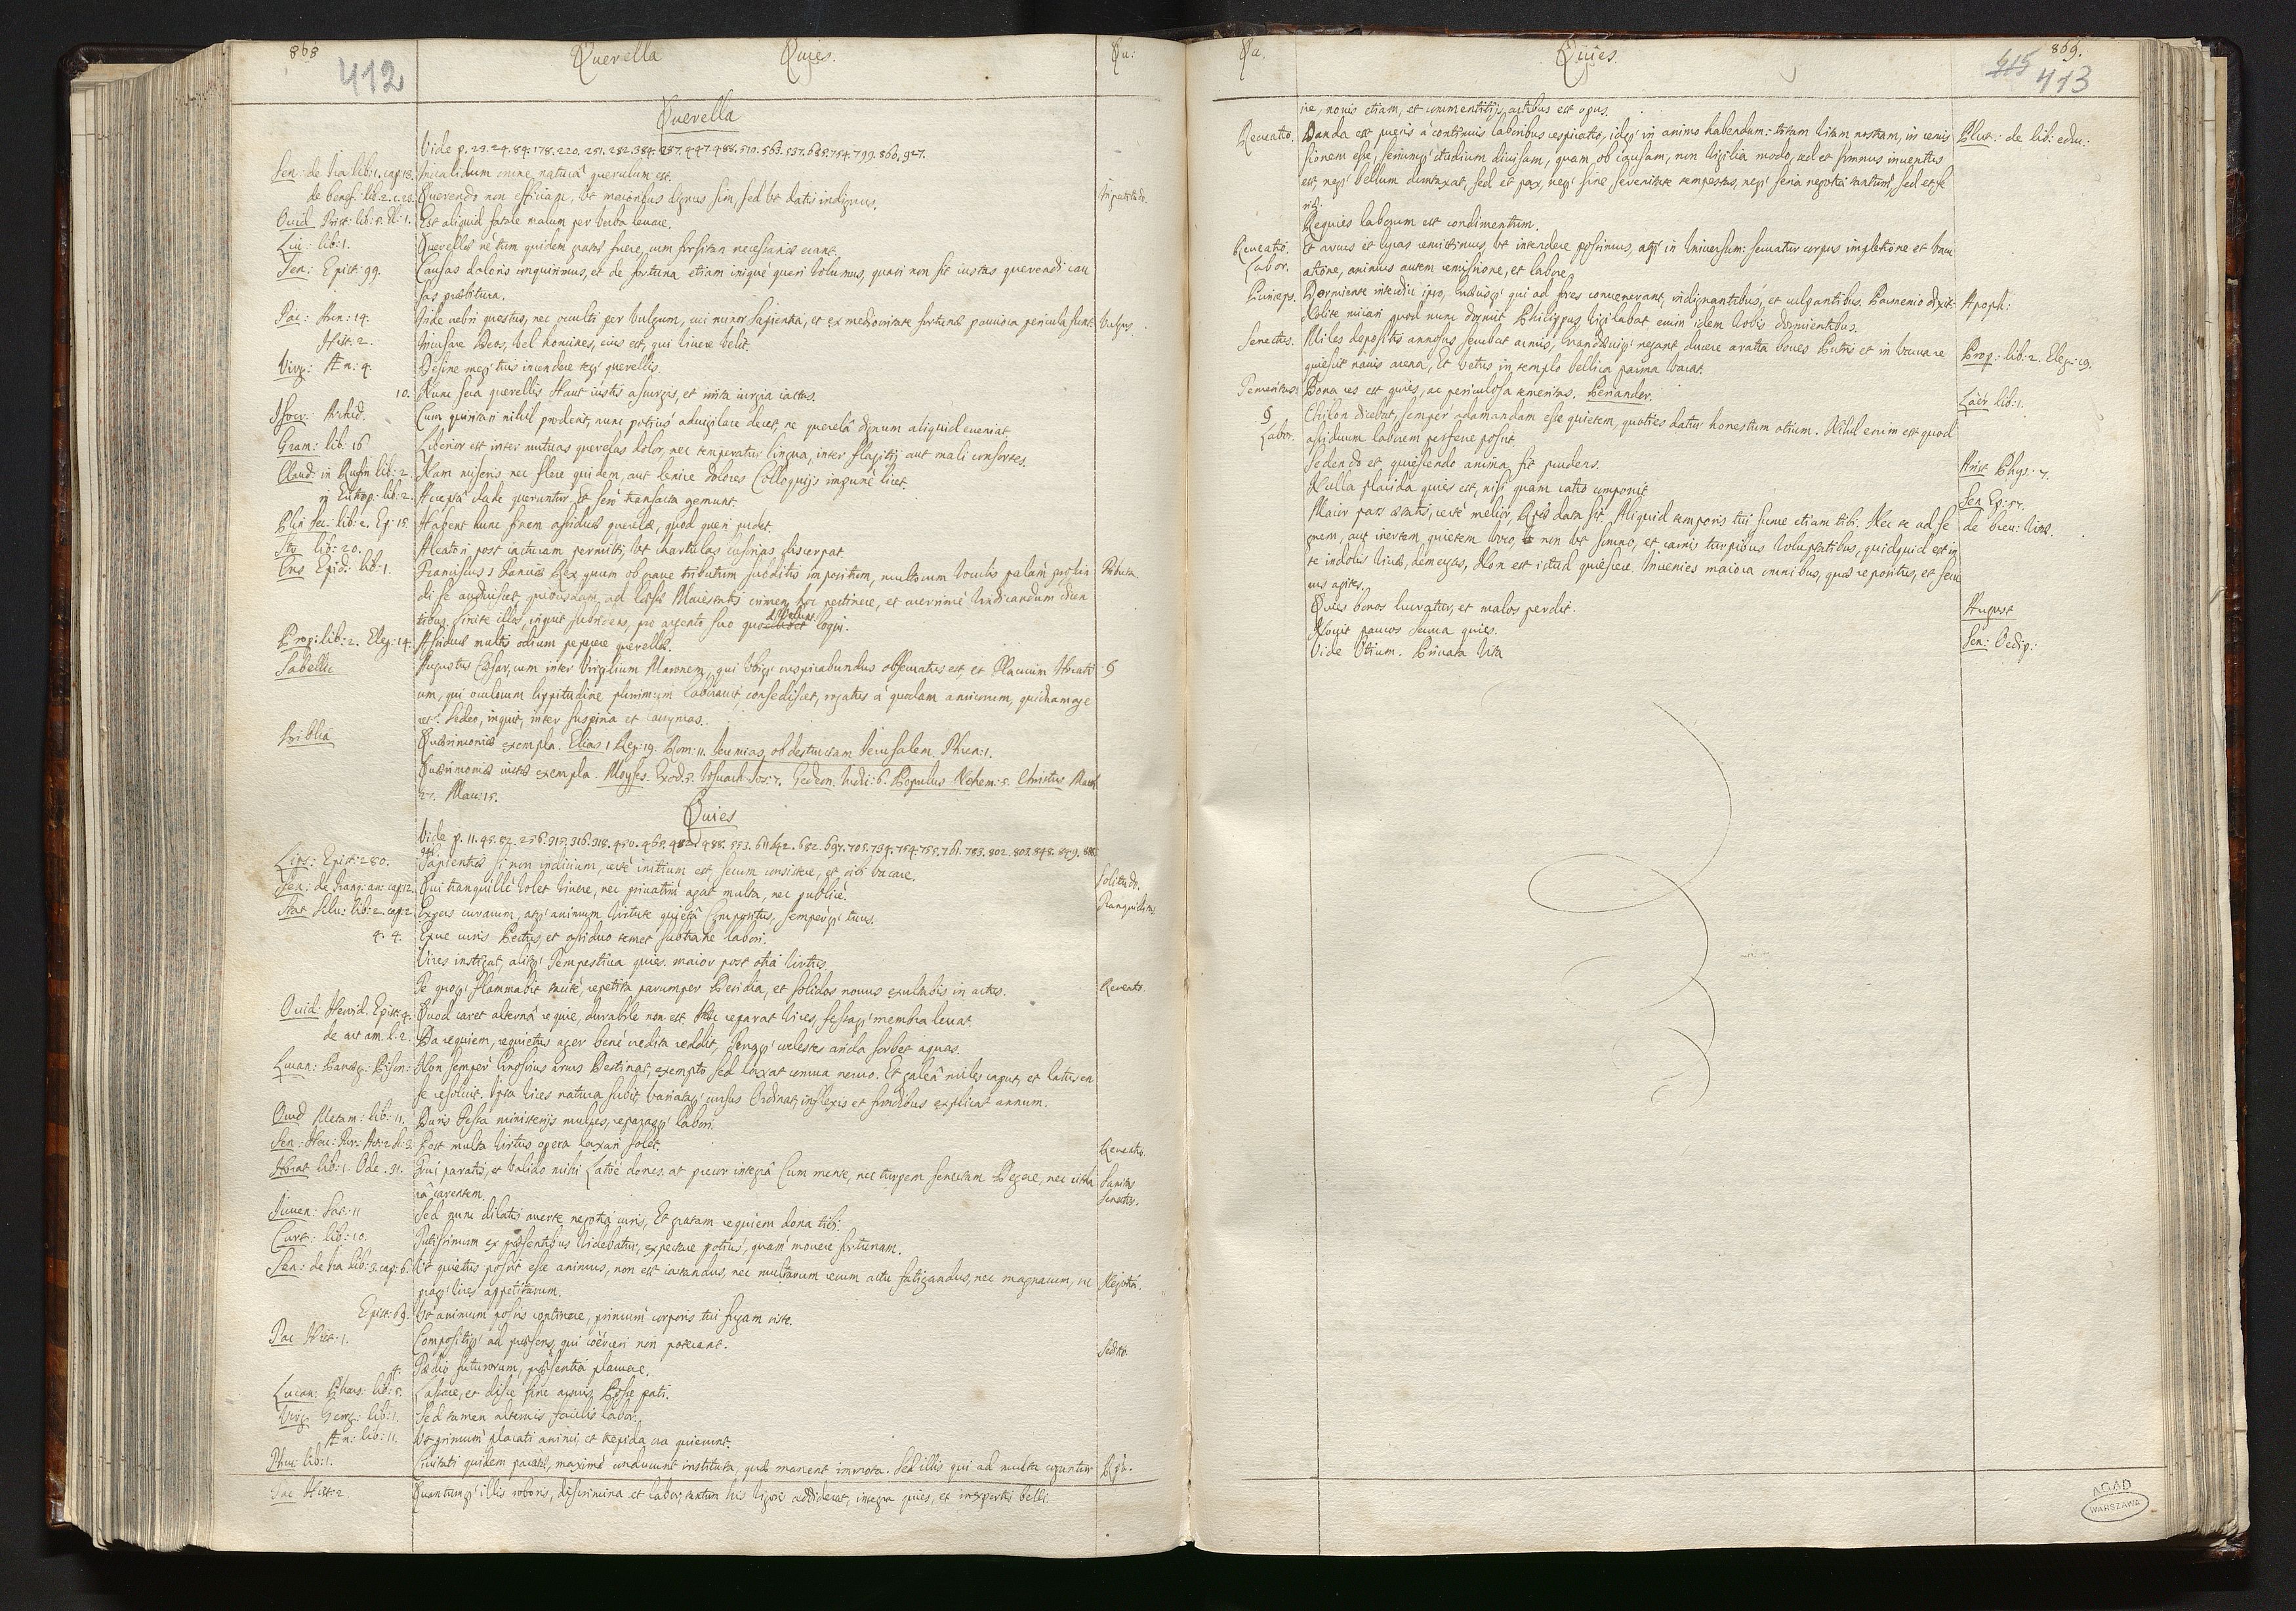 868
412
Querella Quies. Qu:
Querella
Vide p. 23. 24. 84. 178. 220. 251. 282. 384.
Sen: de Ira lib: 1. cap: 13. Inualidum omne naturâ querulum est.
de benef: lib: 2. c. 28. Querendo non efficiam, vt maioribus dignus sim, sed vt datis indignus.
Ouid Trist: lib: 5. El: 1. Est aliquid fatale malum per verba leuare.
Liu: lib: 1. Querellæ ne tum quidem gratæ fuere, cum forsitan necessariæ erant.
Sen: Epist: 99. Causas doloris conquirimus, et de fortuna etiam iniquè queri volumus, quasi non sit iustas querendi cau
sas præbitura.
Tac: Ann: 14. Inde crebri questus, nec occulti per vulgum, cui minor sapientia, et ex mediocritate fortunæ pauciora pericula sunt. Vulgus
Hist: 2. Incusare Deos, vel homines, eius est, qui viuere velit.
Virg: Æn: 4. Desine meq; tuis incendere teq; querellis.
10. Nunc sera querellis Haut iustis assurgis, et irrita iurgia iactas.
Isocr: Archid. Cum quiritari nihil prodest, nunc potius aduigilare decet, ne querelâ dignum aliquid eueniat
Gram: lib: 16 Liberior est inter mutuas querelas dolor, nec temperatur lingua, inter flagitij aut mali consortes.
Claud: in Rufin lib: 2. Nam miseris nec flere quidem, aut lenire dolores Colloquijs impunè licet.
in Eutrop: lib: 2. Acceptâ clade queruntur, et serò transacta gemunt.
Plin Sec: lib: 2. Ep: 18. Habent hunc finem assiduæ querelæ, quod queri pudet.
lib: 20. Aleatori post iacturam permitti, vt chartulas lusorias discerpat.
Epid: lib: 1. Franciscus I Franciæ Rex quum ob graue tributum subditis impositum, multorum vocibus palàm proscin Tributa
di se audiuisset, quibusdam ad læsæ Maiestatis crimen hoc pertinere, et acerrimè vindicandum dicen
tibus, sinite illos, inquit subridens, pro argento suo quod libet loqui.
Prop: lib: 2. Eleg: 14. Assiduæ multis odium peperere querellæ.
Sabellic Augustus Cæsar, cum inter Virgilium Maronem, qui vbiq; suspirabundus obseruatus est, et Flaccum Horati §
um, qui oculorum lippitudine plurimum laborauit, consedisset, rogatus à quodam amicorum, quidnam age
ret? Sedeo, inquit, inter suspiria et lacrymas.
Biblia Quærimoniæ exempla. Elias 1 Reg: 19. Rom: 11. Ieremias ob destructam Ierusalem. Thren: 1.
Quærimoniæ iustæ exempla. Moyses. Exod: 5. Iosuach Ios: 7. Gedeon. Iudi: 6. Populus Nehem: 5. Christus Matth
27. Mar: 15.
Quies
Vide p. 11. 45. 82. 256. 313. 316. 318.
Lips: Epist: 280. Sapientiæ si non indicium, certè initium est, secum consistere, et sibi vacare. Solitudo.
Sen: de Tranq: an: cap: 12. Qui tranquillè volet viuere, nec priuatim agat multa, nec publicè. Tranquillitas
Stat Silu: lib: 2. cap: 2 Expers curarum, atq; animum virtute quietâ Compositus, sempérq; tuus.
4. 4. Exue curis Pectus, et assiduo temet subtrahe labori.
Vires instigat, alitq; Tempestiua quies. maior post otia virtus.
Te quoq; flammabit tacitè, repetita parumper Desidia, et solidos nouus exultabis in actus. Recreatio.
Ouid: Heroid. Epist: 4. Quod caret alternâ requie, durabile non est. Hæc reparat vires, fessaq; membra leuat.
de art am. l: 2. Da requiem, requietus ager benè credita reddit, Terraq; cœlestes arida sorbet aquas.
Lucan: Paneg: Pison: Non semper Gnossius arcus Destinat, exempto sed laxat cornua neruo. Et galeâ miles caput, et latus en
se resoluit. Ipsa vices natura subit variataq; cursus Ordinat, inflexis et frondibus explicat annum.
Ouid Metam: lib: 11. Duris fessa ministerijs mulces, reparasq; labori.
Sen: Herc: Fur: Act: 2. S: 3. Post multa virtus opera laxari solet. Recreatio.
Horat lib: 1. Ode. 31. Frui paratis, et valido mihi Latoë dones, at precor integrâ Cum mente, nec turpem senectam Degere, nec citha Sanitas
râ carentem. Senectus.
Iuuen: Sat: 11 Sed nunc dilatis auerte negotia curis, Et gratam requiem dona tibi.
Curt: lib: 10. Tutissimum ex præsentibus videbatur, expectare potiùs, quàm mouere fortunam.
Sen: de Ira lib: 3. cap: 6. Vt quietus possit esse animus, non est iactandus, nec multarum rerum actu fatigandus, nec magnarum, su Negotia.
praq; vires appetitarum.
Epist: 69. Vt animum possis continere, primum corporis tui fugam siste.
Tac Hist: 1. Compositiq; ad præsens, qui coërceri non poterant. Seditio.
4. Tædio futurorum, præsentia placuere.
Lucan: Phars: lib: 5. Lassare, et disce sine armis Posse pati.
Virg: Georg: lib: 1. Sed tamen alternis facilis labor.
Æn: lib: 11. Vt primum placati animi, et trepida ora quierunt.
Thuc: lib: 1. Ciuitati quidem pacatæ, maximè conducunt instituta, quæ manent immota. Sed illis qui ad multa coguntur
Tac Hist: 2. Quantumq; illis roboris, discrimina et labor, tantum his vigoris addiderat, integra quies, et inexpertis belli.
Qu. Quies. 869.
415 413
ire, nouis etiam, et commentitijs artibus est opus.
Recreatio. Danda est pueris à continuis laboribus respiratio, idq; in animo habendum: totam vitam nostram, in remis Plut: de lib: educ:
sionem esse, seriumq; studium diuisam, quam ob causam, non vigilia modo, sed et somnus inuentus
est, neq; bellum duntaxat, sed et pax, neq; sine serenitate tempestas, neq; seria negotia tantùm, sed et fe
riæ.
Requies laborum est condimentum.
Recreatio. Et arcus et lyras remittimus, vt intendere possimus, atq; in vniuersum: seruatur corpus impletione et vacu
Labor. atione, animus autem remissione, et labore.
Princeps. Dormiente interdiu ipso, Græcisq; qui ad fores conuenerant, indignantibus, et culpantibus. Parmenio dixit: Apoph:
Nolite mirari quod nunc dormit Philippus, vigilabat enim idem vobis dormientibus.
Senectus. Miles depositis annosus secubat armis, Grandæuiq; negant ducere aratra boues Putris et in vacua re Prop: lib: 2. Eleg: 19.
quiescit nauis arena, Et vetus in templo bellica parma vacat.
Temeritas. Bona res est quies, at periculosa temeritas. Periander. Laër lib: 1.
§ Chilon dicebat, semper adamandam esse quietem, quoties datur honestum otium. Nihil enim est quod
Labor. assiduum laborem perferre possit
Sedendo et quiescendo anima fit prudens. Arist Phys: 7.
Nulla placida quies est, nisi quam ratio composuit Sen Ep: 57.
Maior pars ætatis, certè melior, Reip data sit. Aliquid temporis tui sume etiam tibi. Nec te ad se de breu: vitæ.
gnem, aut inertem quietem voco, non vt somno, et caris turpibus voluptatibus, quidquid est in
te indolis viuæ, demergas, Non est istud quiescere. Inuenies maiora omnibus, quæ repositus, et secu
rus agites.
Quies bonos lucratur, et malos perdit. August
Nouit paucos secura quies. Sen: Oedip:
Vide Otium. Priuata vita
AGAD
WARSZAWA